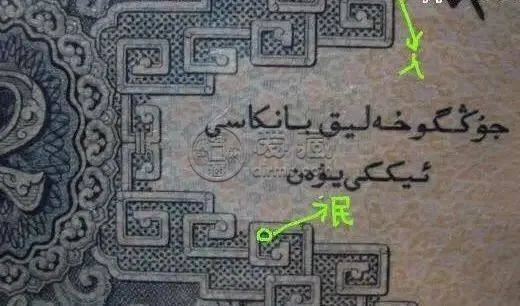 人
جۇڭگو خەلىق بانكاسى
ئىككى يۈەن
民